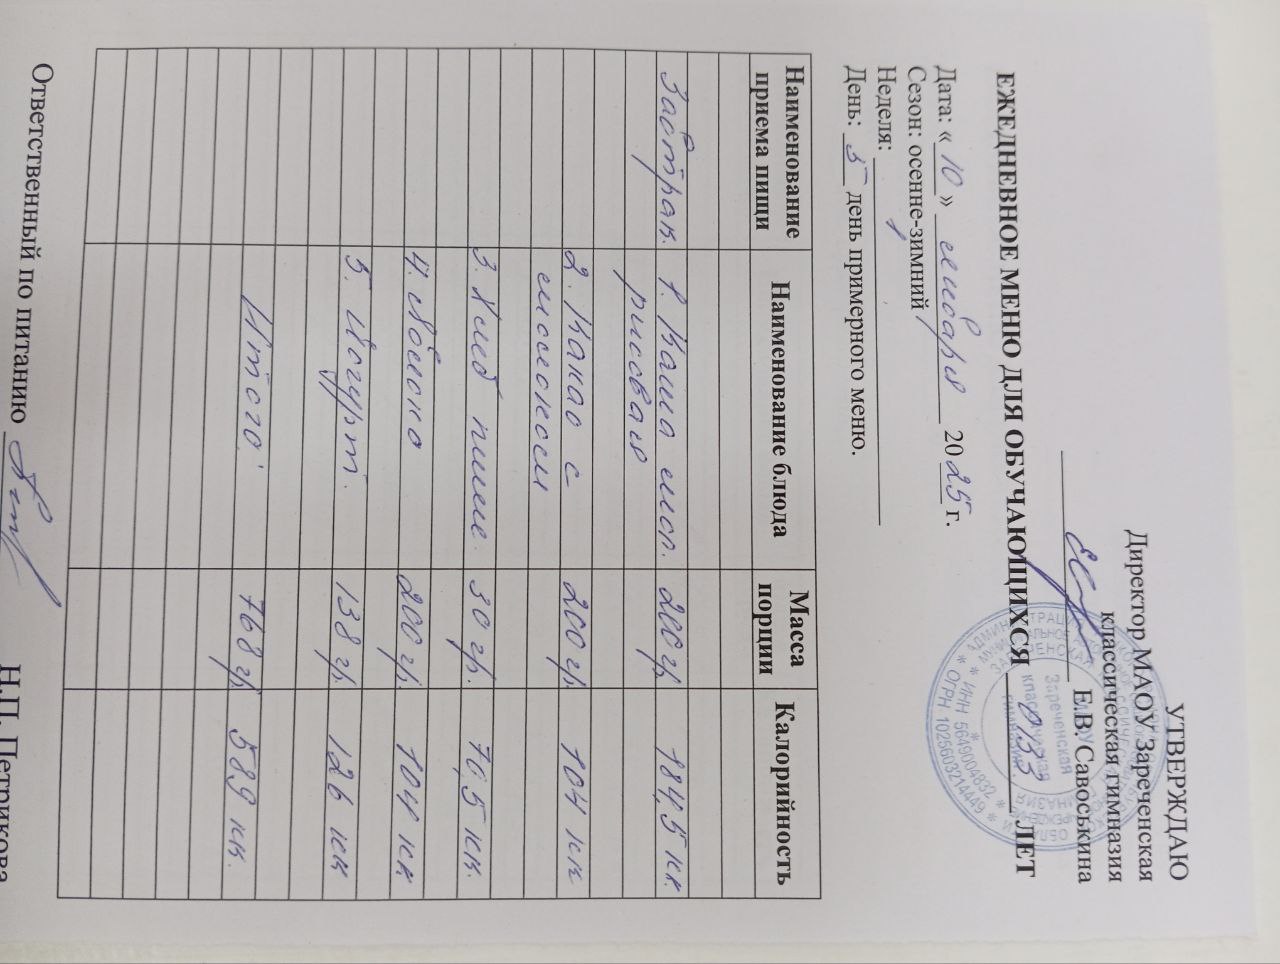 УТВЕРЖДАЮ
Директор МАОУ Зареченская
классическая гимназия
Е.В. Савоськина
ЕЖЕДНЕВНОЕ МЕНЮ ДЛЯ ОБУЧАЮЩИХСЯ ОВЗ ЛЕТ
Дата: « 10 » января 2025 г.
Сезон: осенне-зимний
Неделя: 1
День: 5 день примерного меню.
Наименование приема пищи Наименование блюда Масса порции Калорийность
Завтрак. 1. Каша мол. 200 гр. 184,5 кк.
рисовая
2. Какао с 200 гр. 104 кк
молоком
3. Хлеб пшен. 30 гр. 70,5 кк.
4. Яблоко 200 гр. 104 кк
5. Йогурт. 138 гр. 126 кк
Итого: 768 гр. 589 кк.
Ответственный по питанию Н.П. Петрикова
ИНН 5649004832
ОГРН 1025603214449
Зареченская
классическая
гимназия